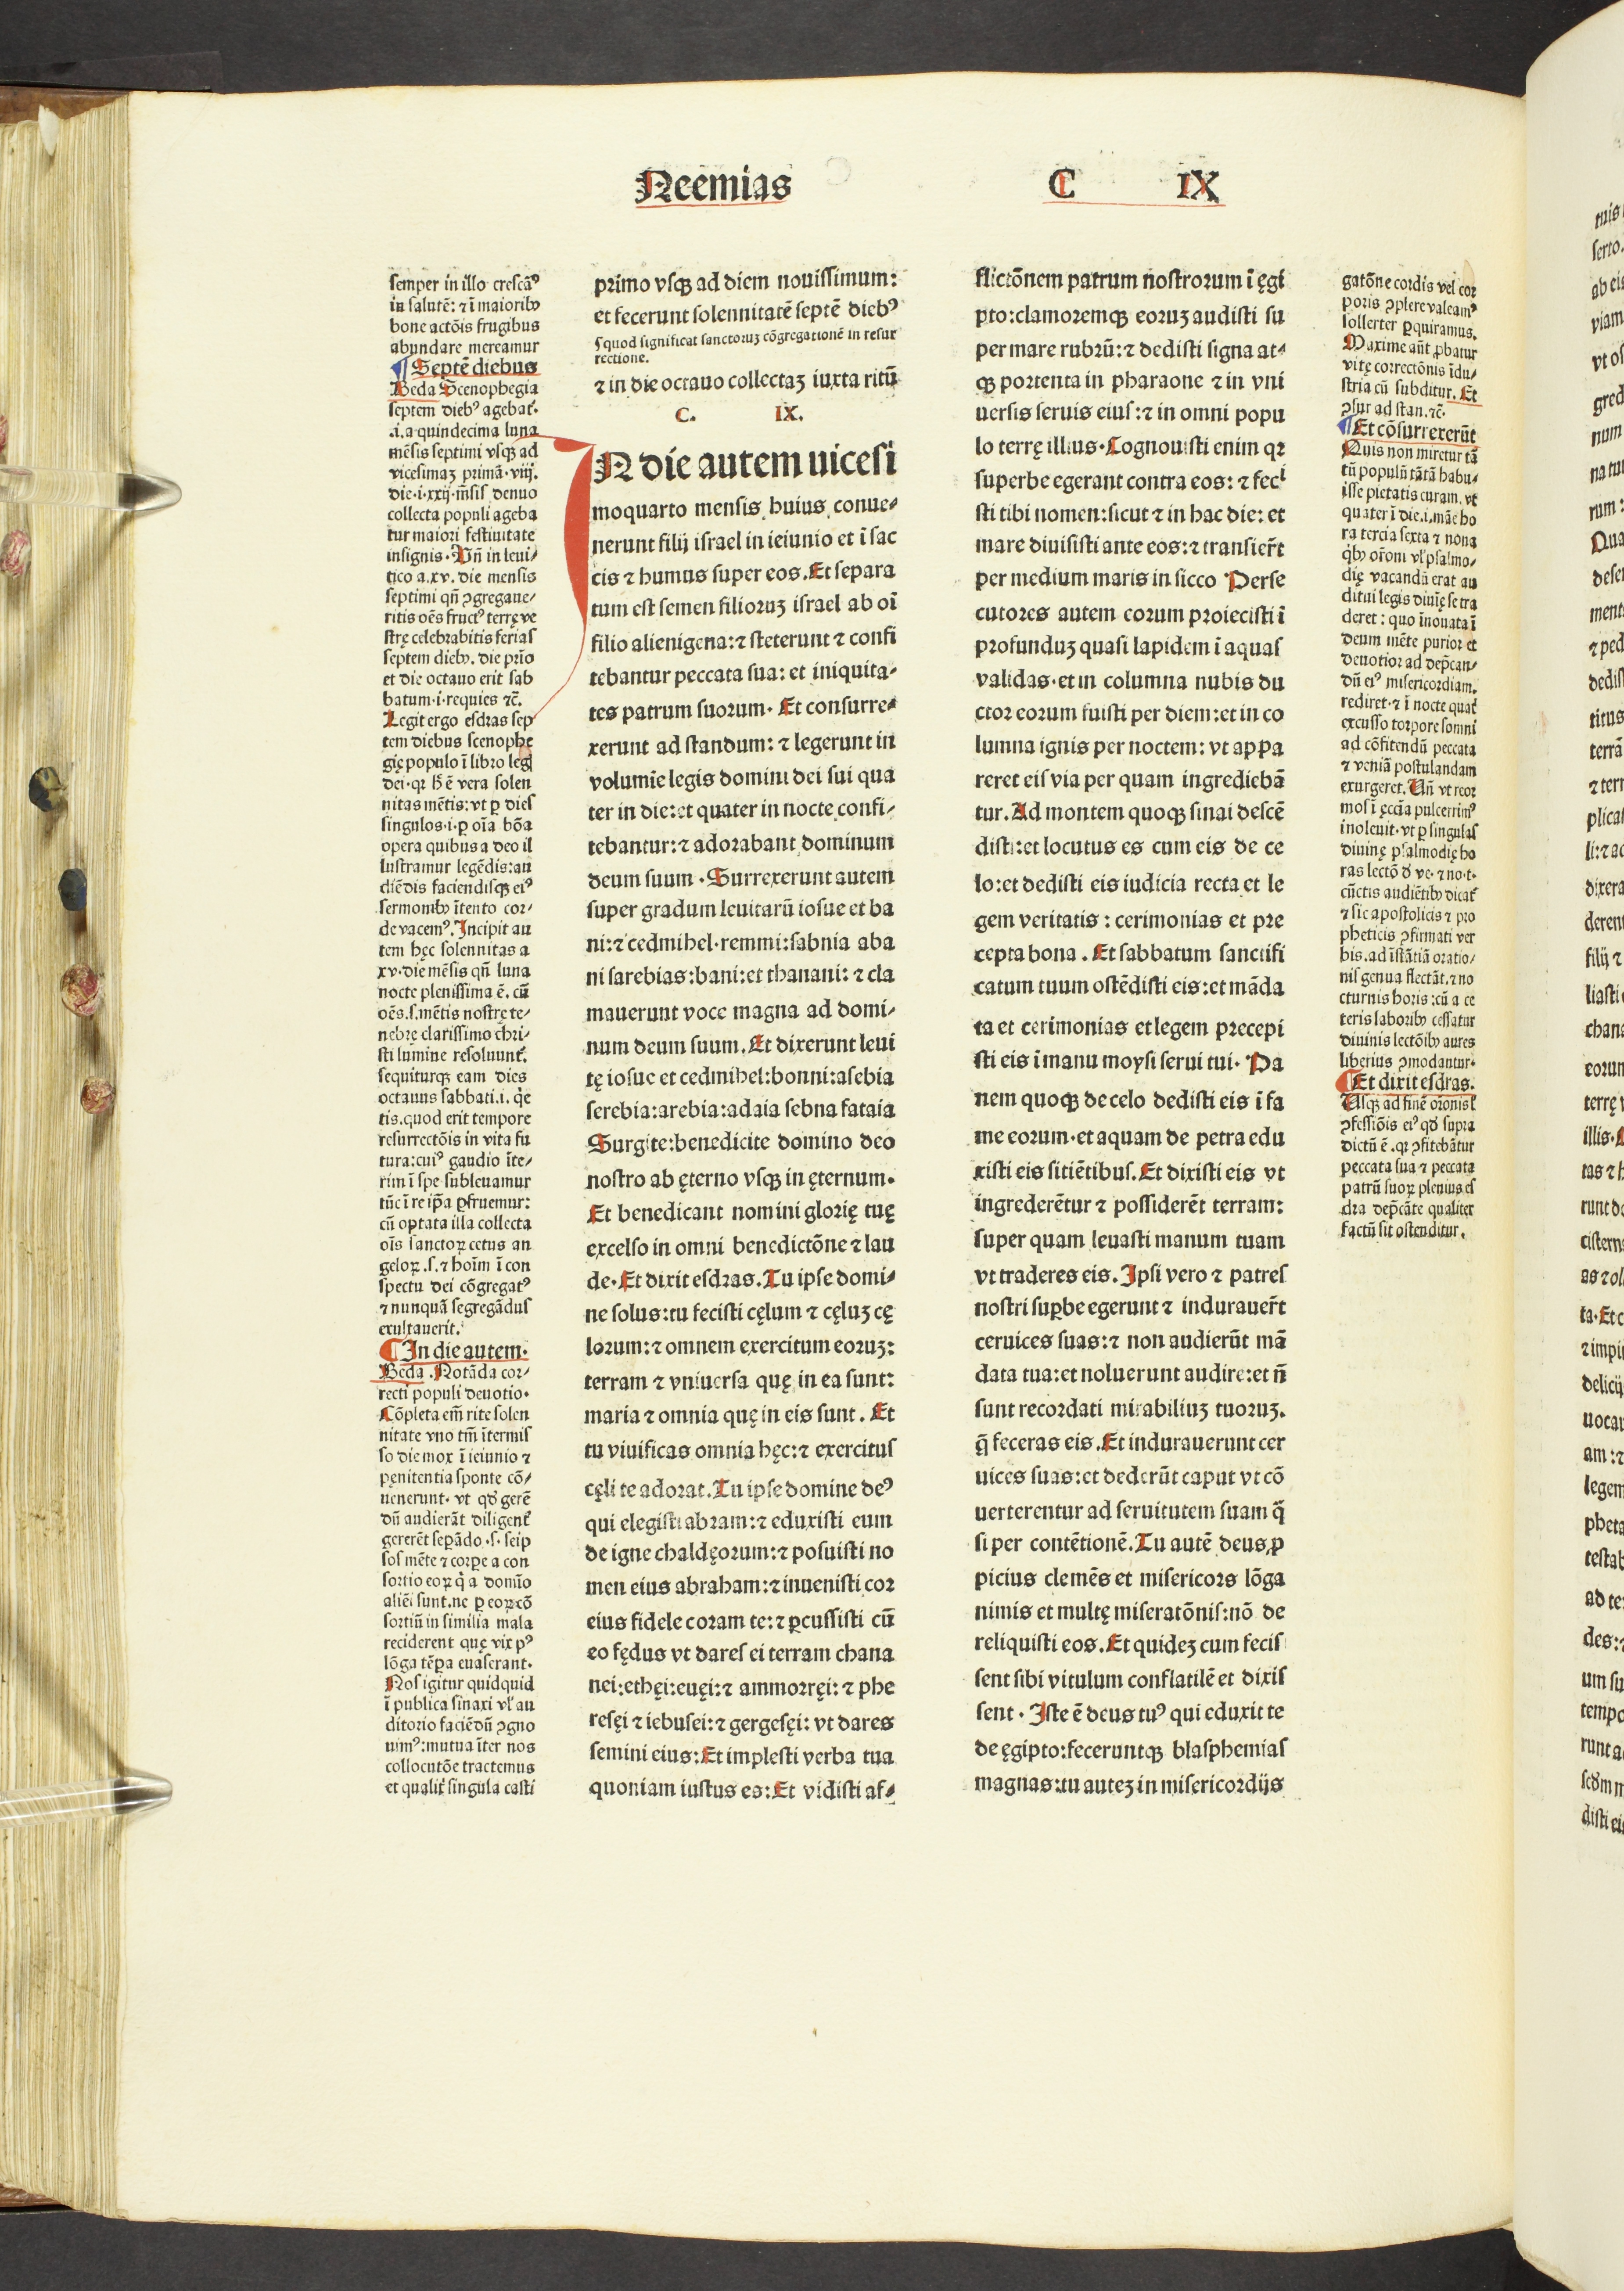 Neemias
C IX
semper in illo crescãꝰ
in salutẽ: ⁊ ĩ maioribꝫ
bone actõis frugibus
abundare mereamur
¶ Septẽ diebus
Beda Scenophegia
septem diebꝰ agebat̃.
.i. a quindecima luna
mẽsis septimi vsqꝫ ad
vicesimaꝫ primã. viij.
die .i. xxij. m̃sis denuo
collecta populi ageba
tur maiori festiuitate
insignis. Vñ in leui⸗
tico a .xv. die mensis
septimi qñ ꝯgregaue⸗
ritis oẽs fructꝰ terrę ve
strę celebrabitis ferias
septem diebꝫ. die prĩo
et die octauo erit sab
batum .i. requies ⁊c̃.
Legit ergo esdras sep
tem diebus scenophe
gię populo ĩ libro leg̃
dei. qꝛ h̃ ẽ vera solen
nitas mẽtis: vt ꝑ dies
singulos .i. ꝑ oĩa bõa
opera quibus a deo il
lustramur legẽdis: au
diẽdis faciendisqꝫ eiꝰ
sermonibꝫ ĩtento cor⸗
de vacemꝰ. Incipit au
tem hęc solennitas a
xv. die mẽsis qñ luna
nocte plenissima ẽ. cũ
oẽs .s. mẽtis nostrę te⸗
nebrę clarissimo chri⸗
sti lumine resoluunt̃.
sequiturqꝫ eam dies
octauus sabbati .i. q̇e
tis. quod erit tempore
resurrectõis in vita fu
tura: cuiꝰ gaudio ĩte⸗
rim ĩ spe subleuamur
tũc ĩ re ip̃a ꝑfruemur:
cũ optata illa collecta
oĩs sanctoꝝ cetus an
geloꝝ .s. ⁊ hoĩm ĩ con
spectu dei cõgregatꝰ
⁊ nunquã segregãdus
exultauerit.
¶ In die autem.
Beda. Notãda cor⸗
recti populi deuotio.
Cõpleta em̃ rite solen
nitate vno tm̃ ĩtermis
so die mox ĩ ieiunio ⁊
pęnitentia sponte cõ⸗
uenerunt. vt qđ gerẽ
dũ audierãt diligent̃
gererẽt sepãdo .s. seip
sos mẽte ⁊ corpe a con
sortio eoꝝ q̇ a domĩo
aliẽi sunt. ne ꝑ eoꝝ cõ
sortiũ in similia mala
reciderent quę vix pꝰ
lõga tẽpa euaserant.
Nos igitur quidquid
ĩ publica sinaxi vl̃ au
ditorio faciẽdũ ꝯgno
uimꝰ: mutua ĩter nos
collocutõe tractemus
et qualit̃ singula casti
primo vsqꝫ ad diem nouissimum:
et fecerunt solennitatẽ septẽ diebꝰ
ſ quod significat sanctoruꝫ cõgregationẽ in resur
rectione.
⁊ in die octauo collectaꝫ iuxta ritũ
C. IX.
IN die autem uicesi
moquarto mensis huius conue⸗
nerunt filij israel in ieiunio et ĩ sac
cis ⁊ humus super eos. Et separa
tum est semen filioruꝫ israel ab oĩ
filio alienigena: ⁊ steterunt ⁊ confi
tebantur peccata sua: et iniquita⸗
tes patrum suorum. Et consurre⸗
xerunt ad standum: ⁊ legerunt in
volumĩe legis domini dei sui qua
ter in die: et quater in nocte confi⸗
tebantur: ⁊ adorabant dominum
deum suum. Surrexerunt autem
super gradum leuitarũ iosue et ba
ni: ⁊ cedmihel. remmi: sabnia aba
ni sarebias: bani: et thanani: ⁊ cla
mauerunt voce magna ad domi⸗
num deum suum. Et dixerunt leui
tę iosue et cedmihel: bonni: asebia
serebia: arebia: adaia sebna fataia
Surgite: benedicite domino deo
nostro ab ęterno vsqꝫ in ęternum.
Et benedicant nomini glorię tuę
excelso in omni benedictõne ⁊ lau
de. Et dixit esdras. Tu ipse domi⸗
ne solus: tu fecisti cęlum ⁊ cęluꝫ cę
lorum: ⁊ omnem exercitum eoruꝫ:
terram ⁊ vniuersa quę in ea sunt:
maria ⁊ omnia quę in eis sunt. Et
tu viuificas omnia hęc: ⁊ exercitus
cęli te adorat. Tu ipse domine deꝰ
qui elegisti abram: ⁊ eduxisti eum
de igne chaldęorum: ⁊ posuisti no
men eius abraham: ⁊ inuenisti cor
eius fidele coram te: ⁊ ꝑcussisti cũ
eo fędus vt dares ei terram chana
nei: ethęi: euęi: ⁊ ammorręi: ⁊ phe
resęi ⁊ iebusei: ⁊ gergesęi: vt dares
semini eius: Et implesti verba tua
quoniam iustus es: Et vidisti af⸗
flictõnem patrum nostrorum ĩ ęgi
pto: clamoremqꝫ eoruꝫ audisti su
per mare rubrũ: ⁊ dedisti signa at⸗
qꝫ portenta in pharaone ⁊ in vni
uersis seruis eius: ⁊ in omni popu
lo terrę illius. Cognouisti enim qꝛ
superbe egerant contra eos: ⁊ feci
sti tibi nomen: sicut ⁊ in hac die: et
mare diuisisti ante eos: ⁊ transier̃t
per medium maris in sicco Perse
cutores autem eorum proiecisti ĩ
profunduꝫ quasi lapidem ĩ aquas
validas. et in columna nubis du
ctor eorum fuisti per diem: et in co
lumna ignis per noctem: vt appa
reret eis via per quam ingrediebã
tur. Ad montem quoqꝫ sinai descẽ
disti: et locutus es cum eis de ce
lo: et dedisti eis iudicia recta et le
gem veritatis: cerimonias et pre
cepta bona. Et sabbatum sanctifi
catum tuum ostẽdisti eis: et mãda
ta et cerimonias et legem precepi
sti eis ĩ manu moysi serui tui. Pa
nem quoqꝫ de celo dedisti eis ĩ fa
me eorum. et aquam de petra edu
xisti eis sitiẽtibus. Et dixisti eis vt
ingrederẽtur ⁊ possiderẽt terram:
super quam leuasti manum tuam
vt traderes eis. Ipsi vero ⁊ patres
nostri supbe egerunt ⁊ indurauer̃t
ceruices suas: ⁊ non audierũt mã
data tua: et noluerunt audire: et ñ
sunt recordati mirabiliuꝫ tuoruꝫ.
q̃ feceras eis. Et indurauerunt cer
uices suas: et dederũt caput vt cõ
uerterentur ad seruitutem suam q̃
si per contẽtionẽ. Tu autẽ deus ꝓ
picius clemẽs et misericors lõga
nimis et multę miseratõnis: nõ de
reliquisti eos. Et quideꝫ cum fecis
sent sibi vitulum conflatilẽ et dixis
sent. Iste ẽ deus tuꝰ qui eduxit te
de ęgipto: feceruntqꝫ blasphemias
magnas: tu auteꝫ in misericordijs
gatõne cordis vel cor
poris ꝯplere valeamꝰ
sollerter ꝑquiramus.
Maxime añt ꝓbatur
vitę correctõnis ĩdu⸗
stria cũ subditur. Et
ꝯsur ad stan. ⁊c̃.
¶ Et cõsurrexerũt
Quis non miretur tã
tũ populũ tãtã habu⸗
isse pietatis curam. vt
quater ĩ die .i. mãe ho
ra tercia sexta ⁊ nona
q̇bꝫ orõni vl̃ psalmo⸗
dię vacandũ erat au
ditui legis diuię se tra
deret: quo ĩnouata ĩ
deum mẽte purior et
deuotior ad dep̃can⸗
dũ eiꝰ misericordiam.
rediret. ⁊ ĩ nocte quat̃
excusso torpore somni
ad cõfitendũ peccata
⁊ veniã postulandam
exurgeret. Vñ vt reor
mos ĩ ęccĩa pulcerrimꝰ
inoleuit. vt ꝑ singulas
diuinę psalmodię ho
ras lectõ đ ve. ⁊ no. t.
cũctis audiẽtibꝫ dicat̃
⁊ sic apostolicis ⁊ pro
pheticis ꝯfirmati ver
bis. ad ĩstãtiã oratio⸗
nis genua flectãt. ⁊ no
cturnis horis: cũ a ce
teris laboribꝫ cessatur
diuinis lectõibꝫ aures
liberius ꝯmodantur.
¶ Et dixit esdras.
Usqꝫ ad finẽ orõnis ĩ
ꝯfessiõis eiꝰ qđ supra
dictũ ẽ. qꝛ ꝯfitebãtur
peccata sua ⁊ peccata
patrũ suoꝝ plenius es
dra dep̃cãte qualiter
factũ sit ostenditur.